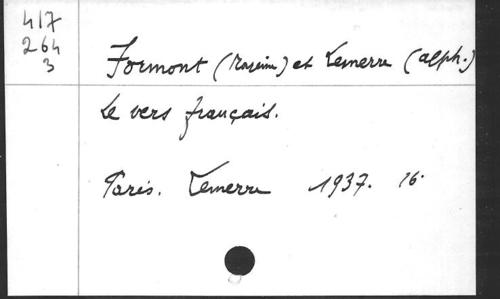 417
264
3
Formont (Maxime) et Lemerre (Alph.)
Le vers français.
Paris. Lemerre 1937. 16.